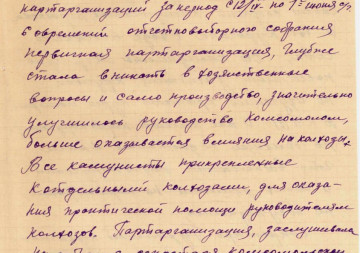 партарганизаций за период с 12/IX- по 1е июня с/г
в овремений отчетновыборного собрания
первичная партарганизация, глубже
стала вникать в хозяйственные
вопросы и само производство, значительно
улучшилось руководство комсомолом,
больше оказывается влияния на колхозы,
Все камунисты прикрепленные
к отдельными колхозами, для оказа-
ния практической помощи руководителям
колхозов. Партарганизация, заслушивала